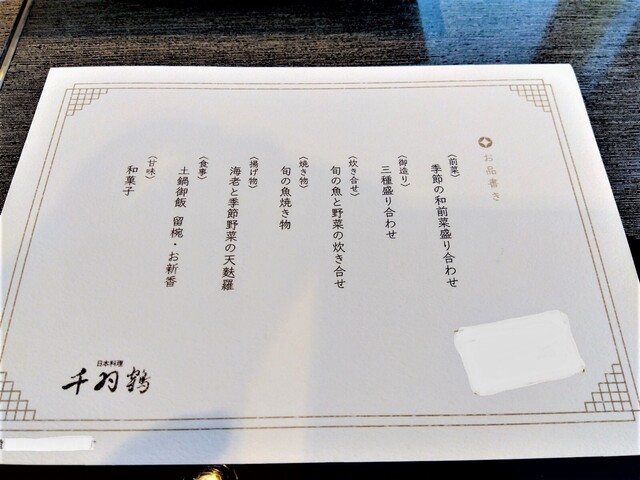 お品書き
〈前菜〉
季節の和前菜盛り合わせ
〈御造り〉
三種盛り合わせ
〈炊き合せ〉
旬の魚と野菜の炊き合せ
〈焼き物〉
旬の魚焼き物
〈揚げ物〉
海老と季節野菜の天麩羅
〈食事〉
土鍋御飯 留椀・お新香
〈甘味〉
和菓子
日本料理
千羽鶴